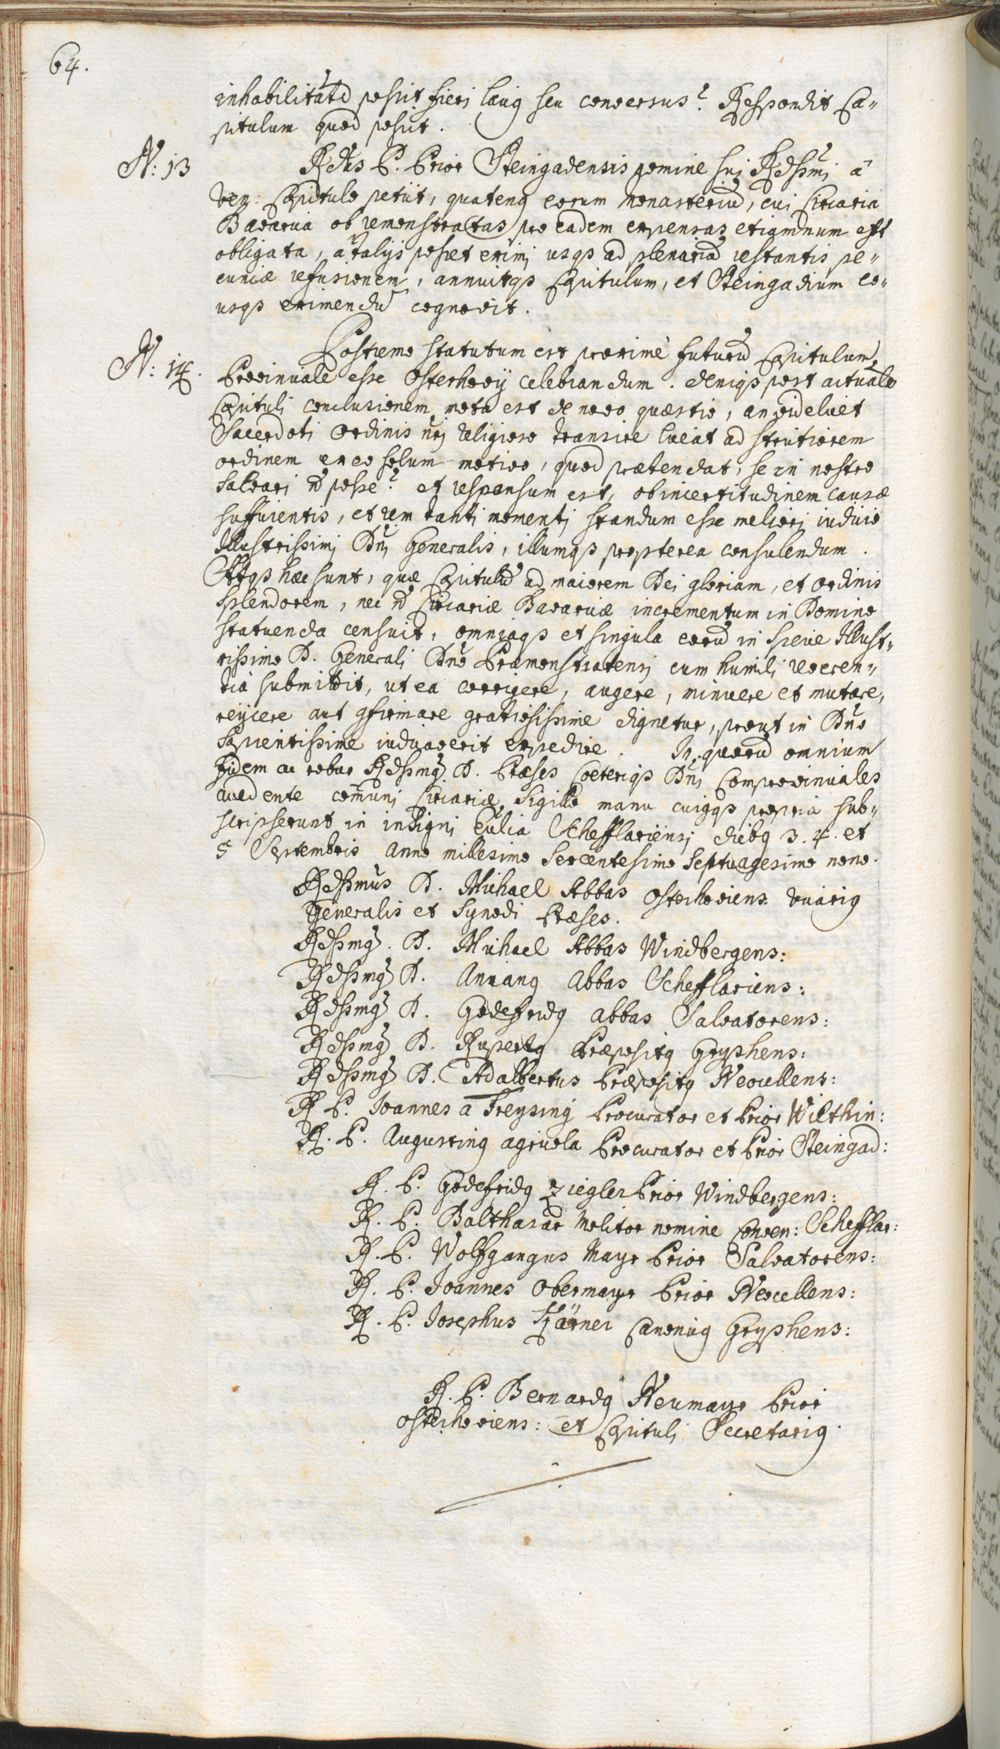 64.
inhabilitatē possit fieri laicꝰ seu conversus? Respondit Ca-
pitulum quod possit.
N: 13
Rdus P. Prior Steingadensis nomine sui Rdssmi a
ven: Capitulo petiit, quatenꝰ eorum monasteriū, cui Circaria
Bavarica ob remonstratas pro eadem expensas etiamnum est
obligata, a talijs posset eximi usqꝫ ad plenariā restantis pe-
cuniæ refusionem, annuitqꝫ Capitulum, et Steingadium eo-
usqꝫ eximendū cognovit.
N: 14.
Postremo statutum est proximè futurū Capitulum
Provinciale esse Osterhovij celebrandum. deniqꝫ post actualē
Capituli conclusionem mota est de novo quæstio, an videlicet
Sacerdoti ordinis nri religioso transire liceat ad strictiorem
ordinem ex eo solum motivo, quod prætendat, se in nostro
salvari ñ posse? et responsum est, ob incertitudinem causæ
sufficientis, et rem tanti momenti standum esse meliori iudicio
Illustrissimi Dni Generalis, illumqꝫ propterea consulendum.
Atqꝫ hæc sunt, quæ Capitulū ad maiorem Dei gloriam, et ordinis
splendorem, nec ñ Circariæ Bavaricæ incrementum in Domino
statuenda censuit, omniaqꝫ et singula eorū in specie Illust-
rissimo D. Generali Dno Præmonstratensi cum humili reveren-
tiâ submittit, ut ea corrigere, augere, minuere et mutare,
reijcere aut cfirmare gratiosissime dignetur, prout in Dno
sapientissime iudicaverit expedire. In quorū omnium
fidem ac robur Rdssmꝰ D. Præses Cœteriqꝫ Dni Comprovinciales
accedente com̄uni Circariæ Sigillo manu cuiusqꝫ propria sub-
scripserunt in insigni Eulia Schefflariensi diebꝰ 3. 4. et
5 Septembris Anno millesimo Sexcentesimo Septuagesimo nono.
Rdssmus D. Michael Abbas Osterhoviens. vicariꝰ
Generalis et Synodi Præses.
Rdssmꝰ D. Michael Abbas Windbergens:
Rdssmꝰ D. Anianꝰ Abbas Schefflariens:
Rdssmꝰ D. Godefridꝰ abbas Salvatorens:
Rdssmꝰ D. Rupertꝰ Præpositꝰ Gryphens:
Rdssmꝰ D. Adalbertus Præpositꝰ Neocellens:
R P. Joannes a Freysing Procurator et Prior Wilthin:
R. P. Augustinꝰ agricola Procurator et Prior Steingad:
R. P. Godefridꝰ Ziegler Prior Windbergens:
R. P. Balthasar Molitor nomine Conven: Schefflar:
R. P. Wolfgangus Mayr Prior Salvatorens:
R. P. Joannes Obermayr Prior Neocellens:
R. P. Josephus Canonicꝰ Gryphens:
R. P. Bernardꝰ Neumayr Prior
Osterhoviens: et Capituli Secretariꝰ.